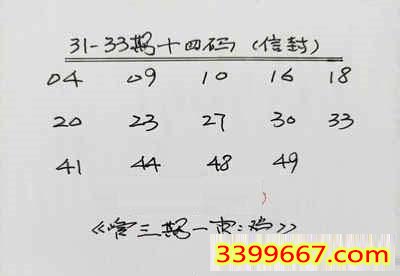 31-33期十四码(信封)
04 09 10 16 18
20 23 27 30 33
41 44 48 49
三期一
3399667.com